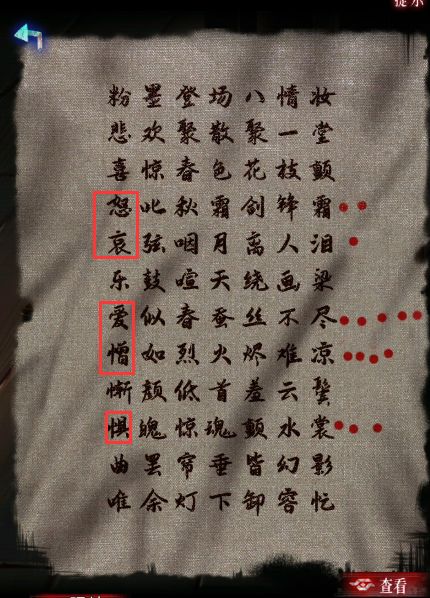 提示
粉墨登场八情妆
悲欢聚散聚一堂
喜惊春色花枝颤
怒叱秋霜剑锋霜
哀弦咽月离人泪
乐鼓喧天绕画梁
爱似春蚕丝不尽
憎如烈火烬难凉
惭颜低首羞云鬓
惧魄惊魂颤水裳
曲罢帘垂皆幻影
唯余灯下卸容忙
查看